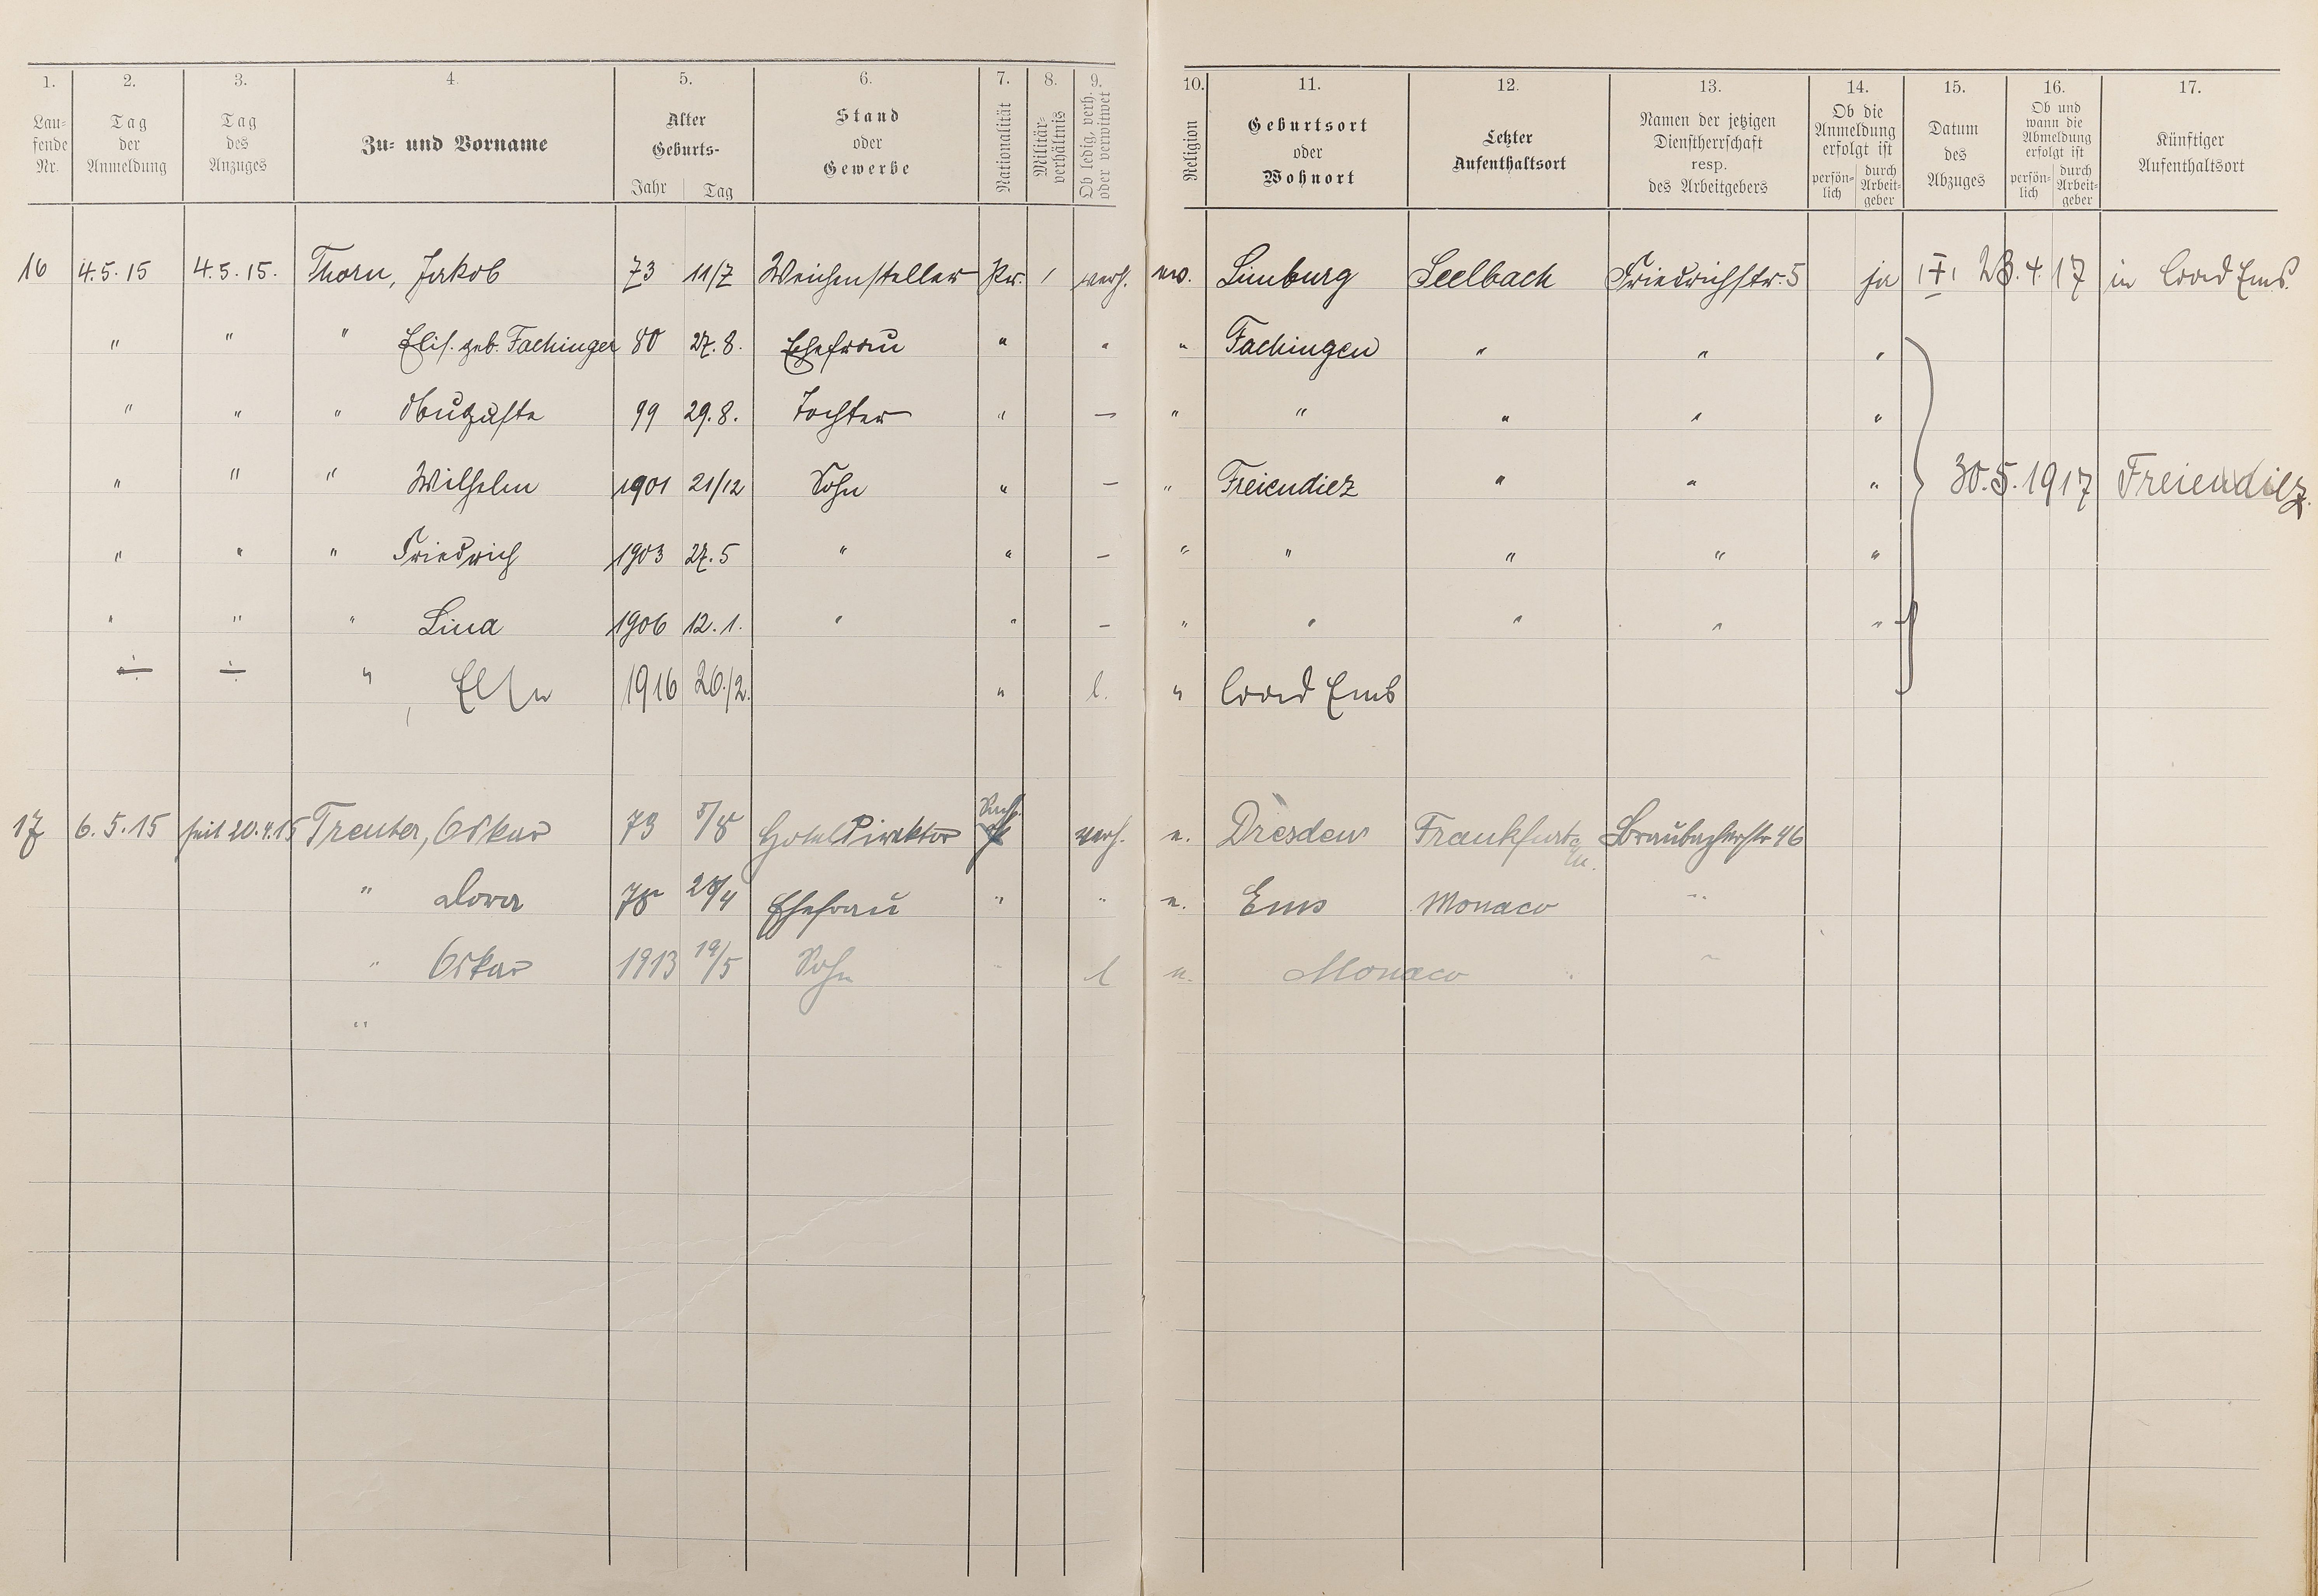 1. 2. 3. 4. 5. 6. 7. 8. 9. 10. 11. 12. 13. 14. 15. 16. 17.
Lau-
fende
Nr.
Tag
der
Anmeldung
Tag
des
Anzuges
Zu- und Vorname
Alter
Geburts-
Jahr Tag
Stand
oder
Gewerbe
Nationalität
Militär-
verhältnis
Ob ledig, verh.
oder verwitwet
Religion
Geburtsort
oder
Wohnort
Letzter
Aufenthaltsort
Namen der jetzigen
Dienstherrschaft
resp.
des Arbeitgebers
Ob die
Anmeldung
erfolgt ist
persön-
lich
durch
Arbeit-
geber
Datum
des
Abzuges
Ob und
wann die
Abmeldung
erfolgt ist
persön-
lich
durch
Arbeit-
geber
Künftiger
Aufenthaltsort
16 4.5.15 4.5.15. Thorn, Jakob 73 11/7 Weichensteller Pr. / verh. ev. Limburg Seelbach Friedrichstr. 5 ja 23.4.17 in Bad Ems.
" " " Elis. geb. Fachinger 80 27.8. Ehefrau " " " Fachingen " " "
" " " Auguste 99 29.8. Tochter " — " " " " "
" " " Wilhelm 1901 21/12 Sohn " — " Freiendiez " " " 30.5.1917 Freiendiez.
" " " Friedrich 1903 27.5 " " — " " " " "
" " " Lina 1906 12.1. " " — " " " " "
÷ ÷ " Else 1916 26./2. " l. " Bad Ems
17 6.5.15 seit 20.4.15 Treuter, Oskar 73 5/8 Hotel Direktor verh. e. Dresden Frankfurt a/M. Braubacherstr 46
" Dora 78 28/4 Ehefrau " " e. Ems Monaco "
" Oskar 1913 19/5 Sohn l e. Monaco "
"